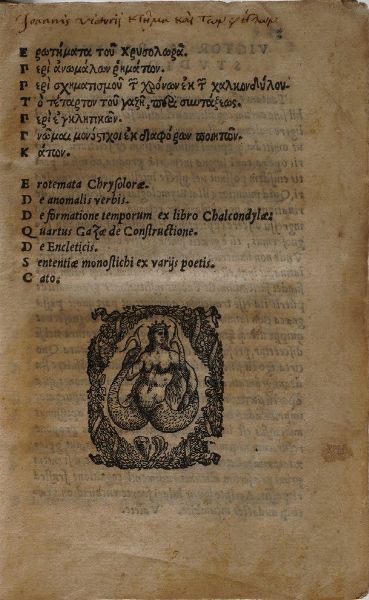 Ioannis Victorii κτῆμα καὶ τῶν φίλων
Ερωτήματα τοῦ Χρυσολωρᾶ.
Περὶ ἀνωμάλων ῥημάτων.
Περὶ σχηματισμοῦ τῶν χρόνων ἐκ τῶν χαλκονδύλου.
Τὸ τέταρτον τοῦ γαζῆ, περὶ συντάξεως.
Περὶ ἐγκλητικῶν.
Γνῶμαι μονόστιχοι ἐκ διαφόρων ποιητῶν.
Κάτων.
Erotemata Chrysoloræ.
De anomalis verbis.
De formatione temporum ex libro Chalcondylæ.
Quartus Gazæ de Constructione.
De Encleticis.
Sententiæ monostichi ex varijs poetis.
Cato.